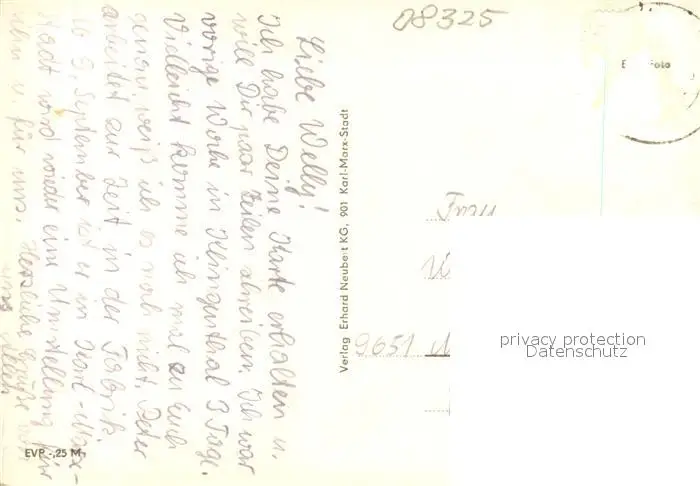 08325
Liebe Welly!
Ich habe Deine Karte erhalten u.
will Dir paar Zeilen schreiben. Ich war
vorige Woche in Klingenthal 3 Tage.
Vielleicht komme ich mal zu Euch
genau weiß ich es noch nicht. Peter
arbeitet zur Zeit in der Fabrik
ab 3. September ist er in Karl-Marx-
Stadt wird wieder eine Umstellung für
ihn u. für uns. Herzliche Grüße von
uns allen
Verlag Erhard Neubert KG, 901 Karl-Marx-Stadt
EVP -,25 M
Foto
Frau
9651
privacy protection
Datenschutz